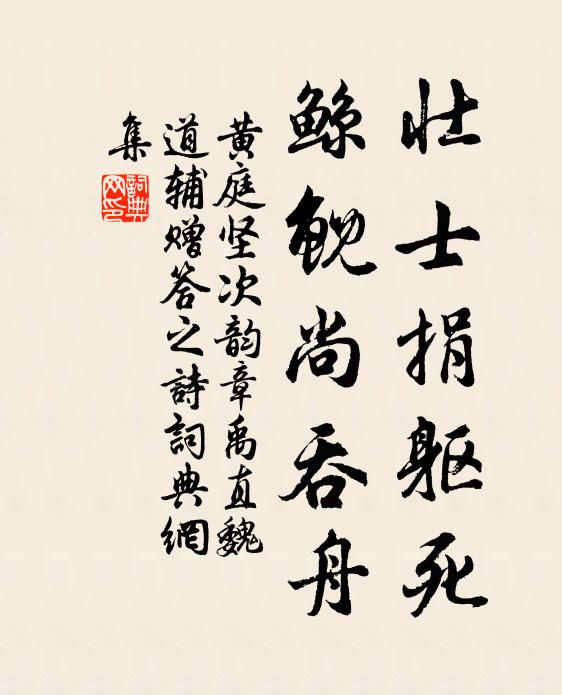 壮士捐躯死
鲸鲵尚吞舟
黄庭坚次韵章禹直魏
道辅赠答之詩詞典網
集
詞典
网印